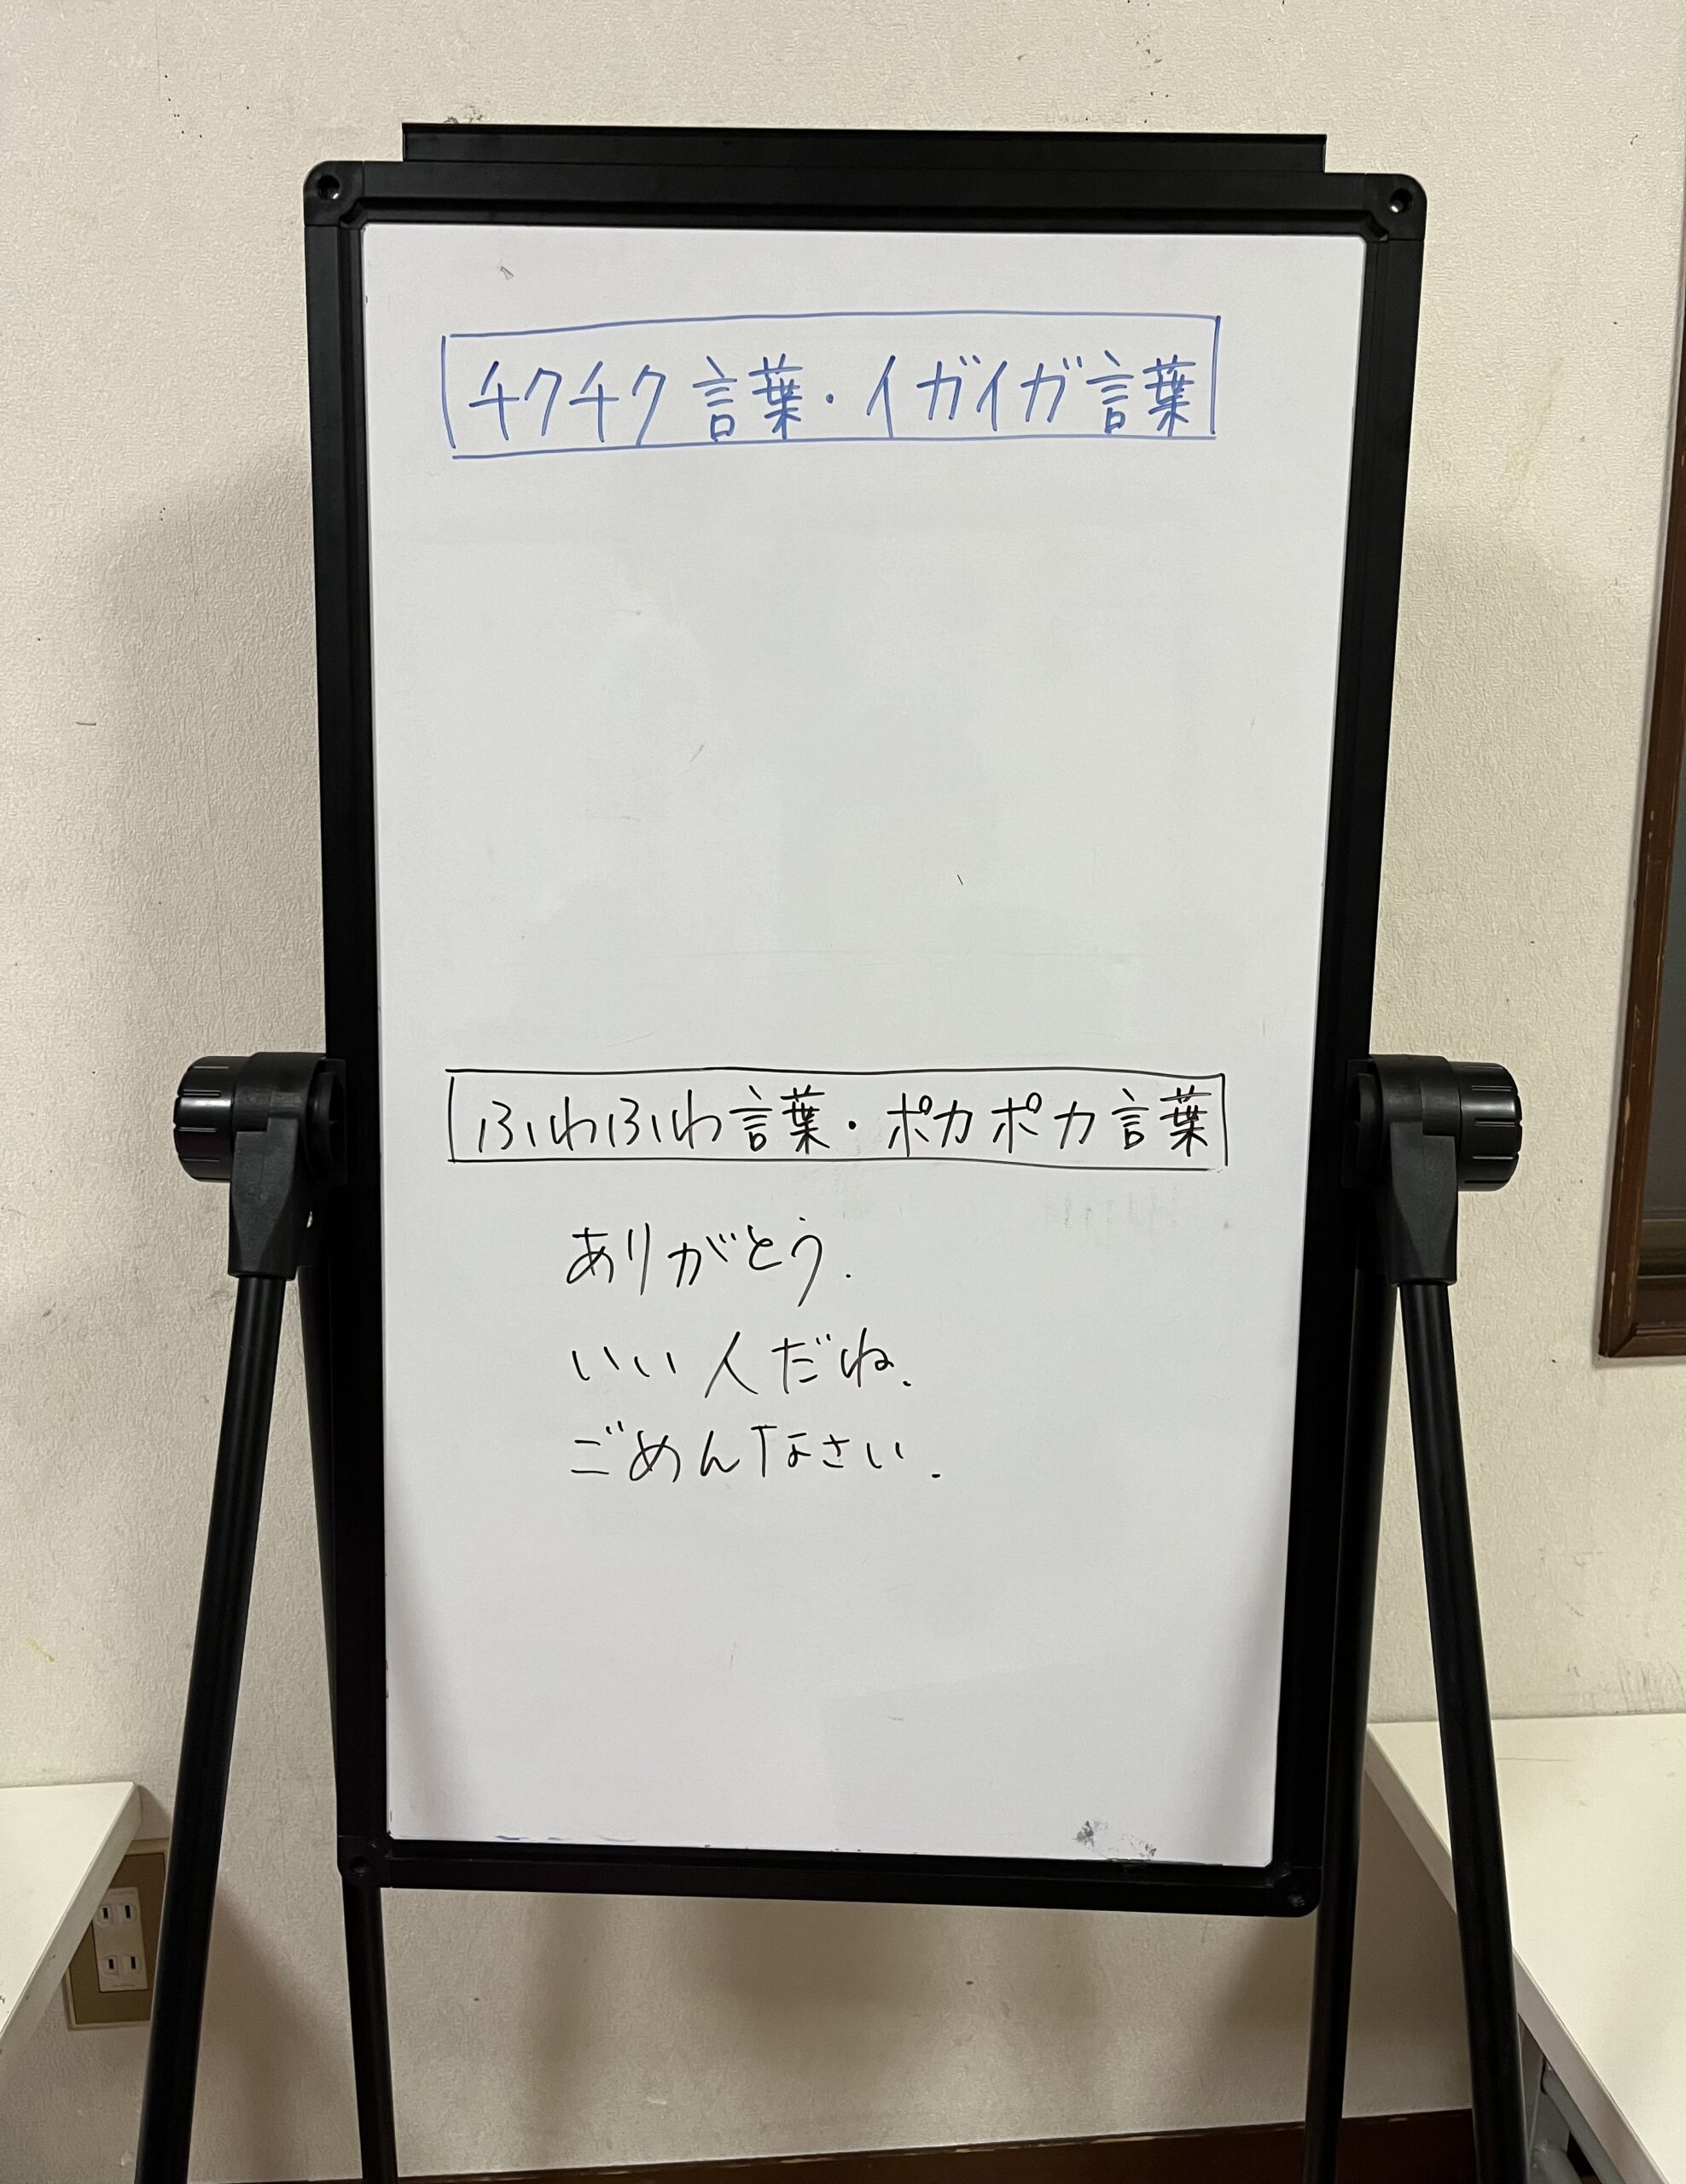 チクチク言葉・イガイガ言葉
ふわふわ言葉・ポカポカ言葉
ありがとう.
いい人だね.
ごめんなさい.